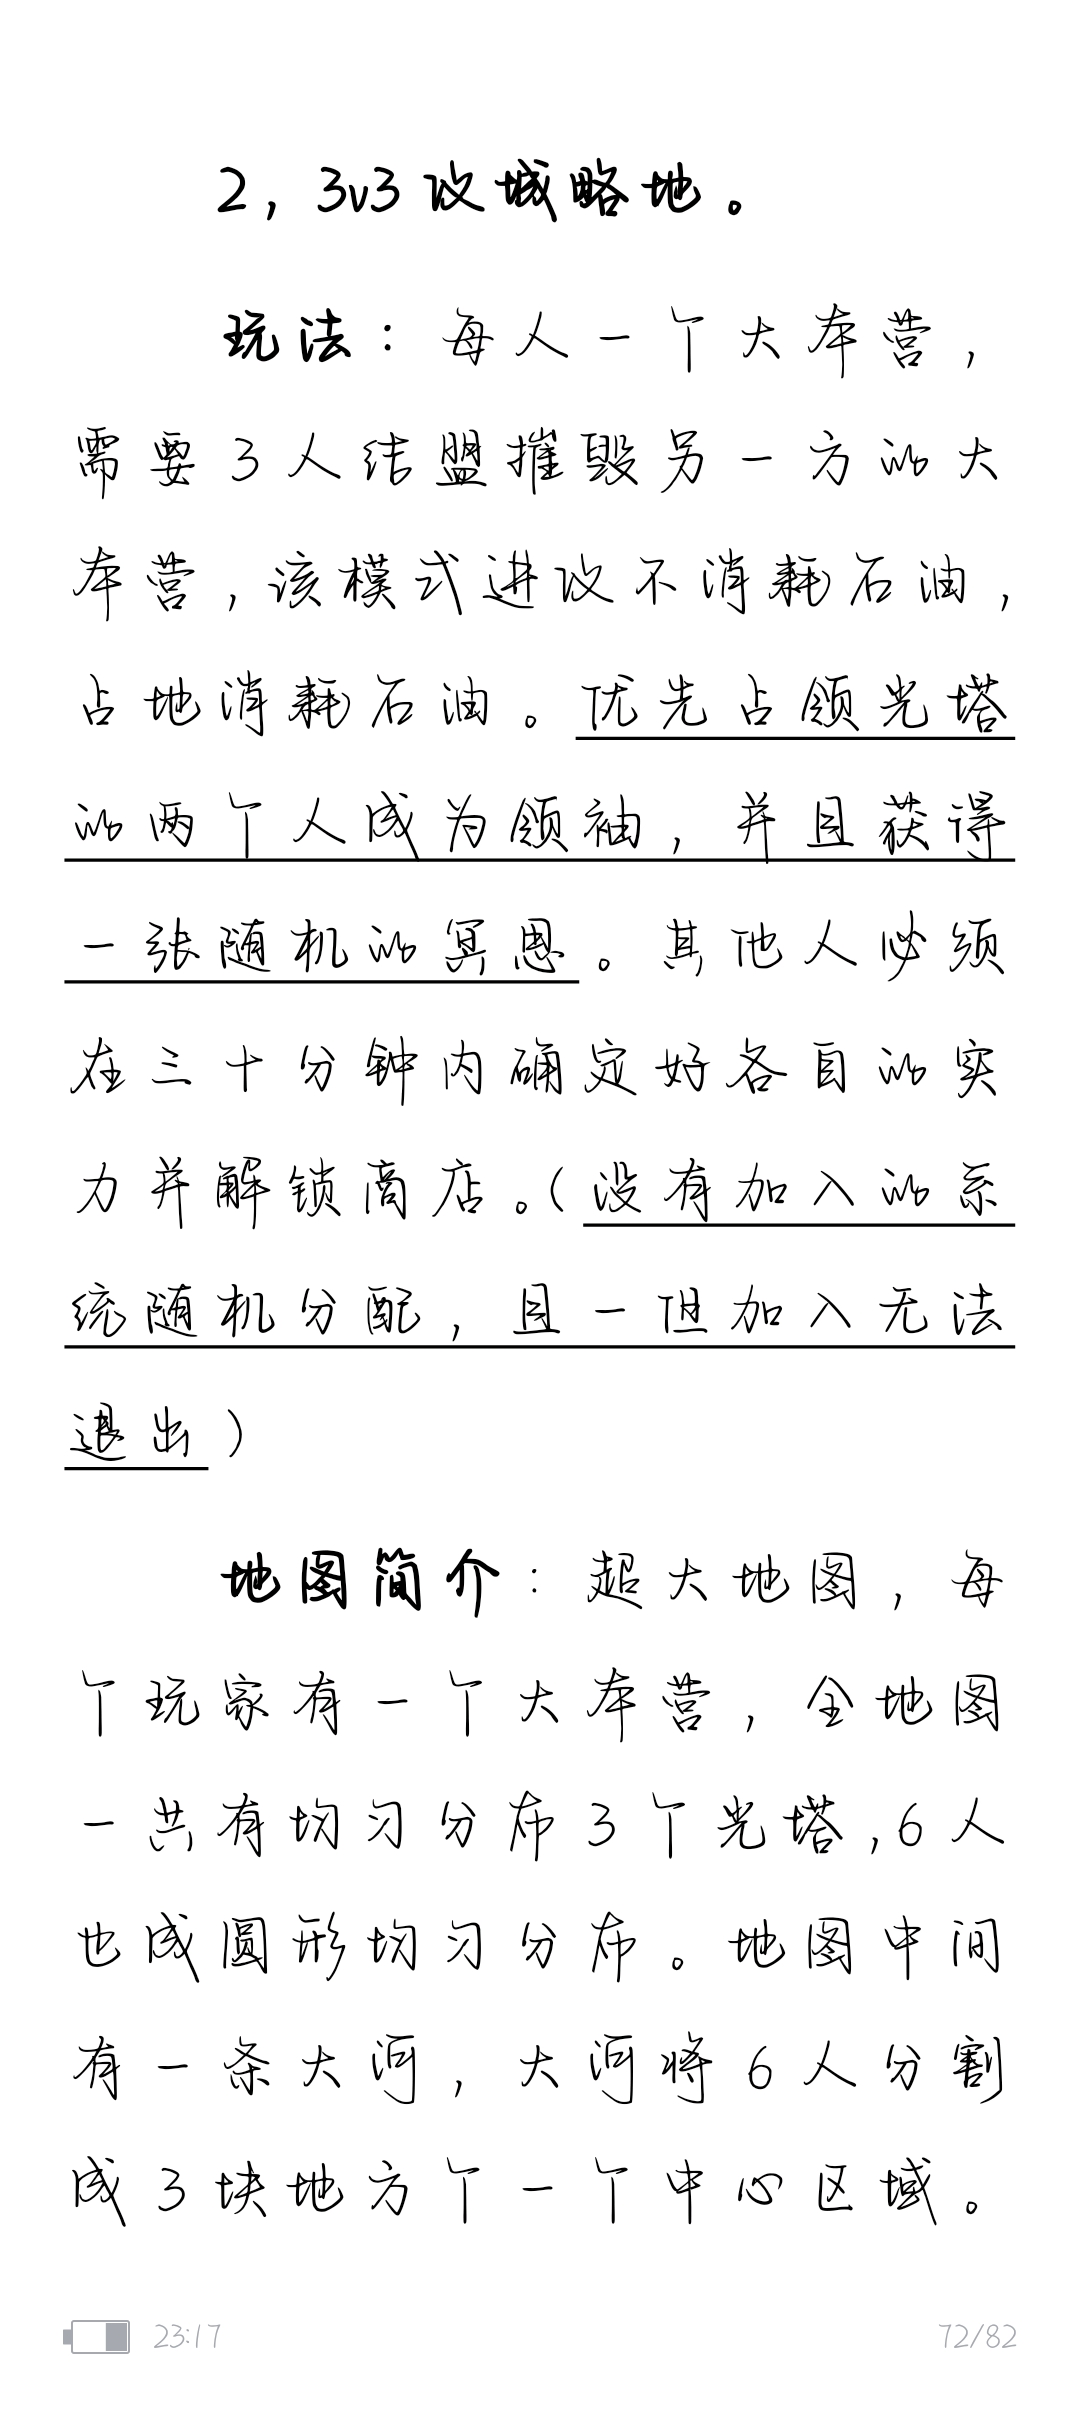 2，3v3攻城略地。
玩法：每人一个大本营，
需要3人结盟摧毁另一方的大
本营，该模式进攻不消耗石油，
占地消耗石油。优先占领光塔
的两个人成为领袖，并且获得
一张随机的冥恩。其他人必须
在三十分钟内确定好各自的实
力并解锁商店。（没有加入的系
统随机分配，且一但加入无法
退出）
地图简介：超大地图，每
个玩家有一个大本营，全地图
一共有均匀分布3个光塔，6人
也成圆形均匀分布。地图中间
有一条大河，大河将6人分割
成3块地方个一个中心区域。
23:17
72/82